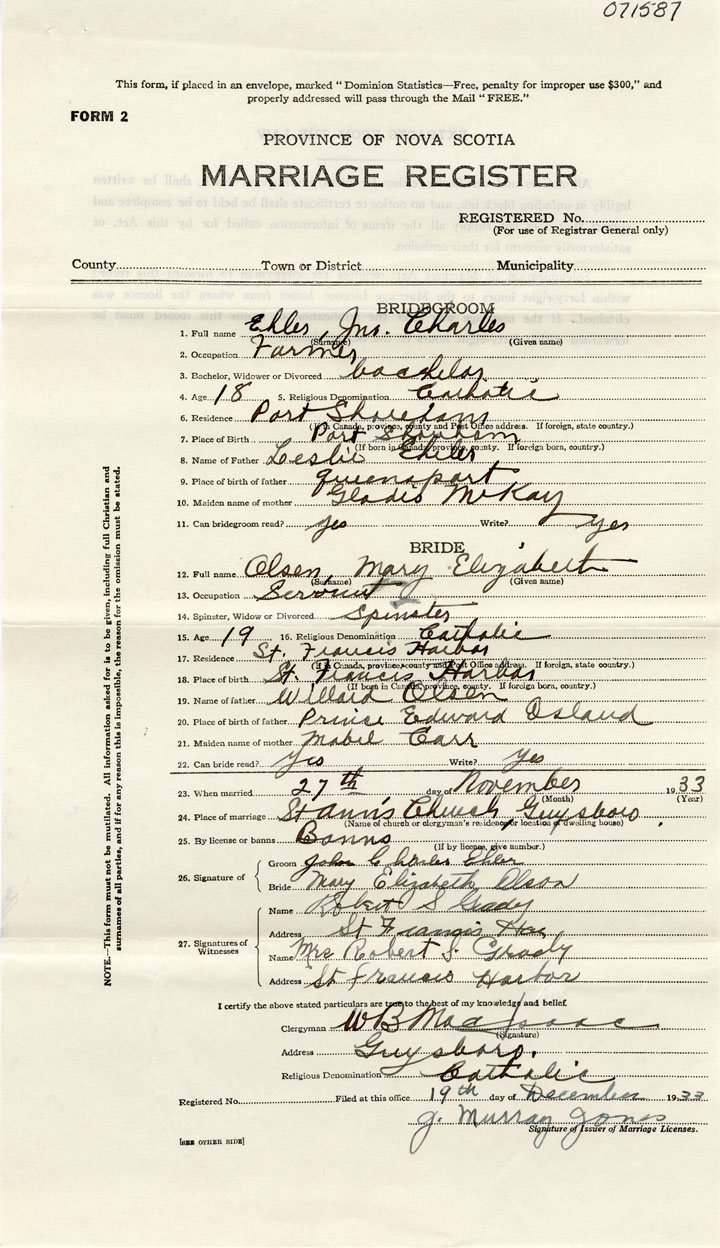 071587
This form, if placed in an envelope, marked "Dominion Statistics—Free, penalty for improper use $300," and
properly addressed will pass through the Mail "FREE."
FORM 2
PROVINCE OF NOVA SCOTIA
MARRIAGE REGISTER
REGISTERED No.
(For use of Registrar General only)
County Town or District Municipality
BRIDEGROOM
1. Full name Ehler, Jno. Charles
(Surname) (Given name)
2. Occupation Farmer
3. Bachelor, Widower or Divorced bachelor
4. Age 18 5. Religious Denomination Catholic
6. Residence Port Shoreham
(If in Canada, province, county and Post Office address. If foreign, state country.)
7. Place of Birth Port Shoreham
(If born in Canada, province, county. If foreign born, country.)
8. Name of Father Leslie Ehler
9. Place of birth of father queensport
10. Maiden name of mother Gladis McKay
11. Can bridegroom read? yes Write? yes
BRIDE
12. Full name Olsen, Mary Elizabeth
(Surname) (Given name)
13. Occupation Servant
14. Spinster, Widow or Divorced Spinster
15. Age 19 16. Religious Denomination Catholic
17. Residence St. Francis Harbor
(If in Canada, province, county and Post Office address. If foreign, state country.)
18. Place of birth St. Francis Harbor
(If born in Canada, province, county. If foreign born, country.)
19. Name of father Willard Olsen
20. Place of birth of father Prince Edward Island
21. Maiden name of mother Mabel Carr
22. Can bride read? Yes Write? Yes
23. When married 27th day of November 1933
(Month) (Year)
24. Place of marriage St Ann's Church, Guysboro.
(Name of church or clergyman's residence, or location of dwelling house)
25. By license or banns Banns
(If by license, give number.)
26. Signature of
Groom John Charles Ehler
Bride Mary Elizabeth Olson
27. Signatures of Witnesses
Name Robert S Grady
Address St Francis Har
Name Mrs Robert S. Grady
Address St Francis Harbor
I certify the above stated particulars are true to the best of my knowledge and belief.
Clergyman WB MacIsaac
(Signature)
Address Guysboro.
Religious Denomination Catholic
Registered No. Filed at this office 19th day of December 1933
J. Murray Jones
Signature of Issuer of Marriage Licenses.
[SEE OTHER SIDE]
NOTE.—This form must not be mutilated. All information asked for is to be given, including full Christian and
surnames of all parties, and if for any reason this is impossible, the reason for the omission must be stated.